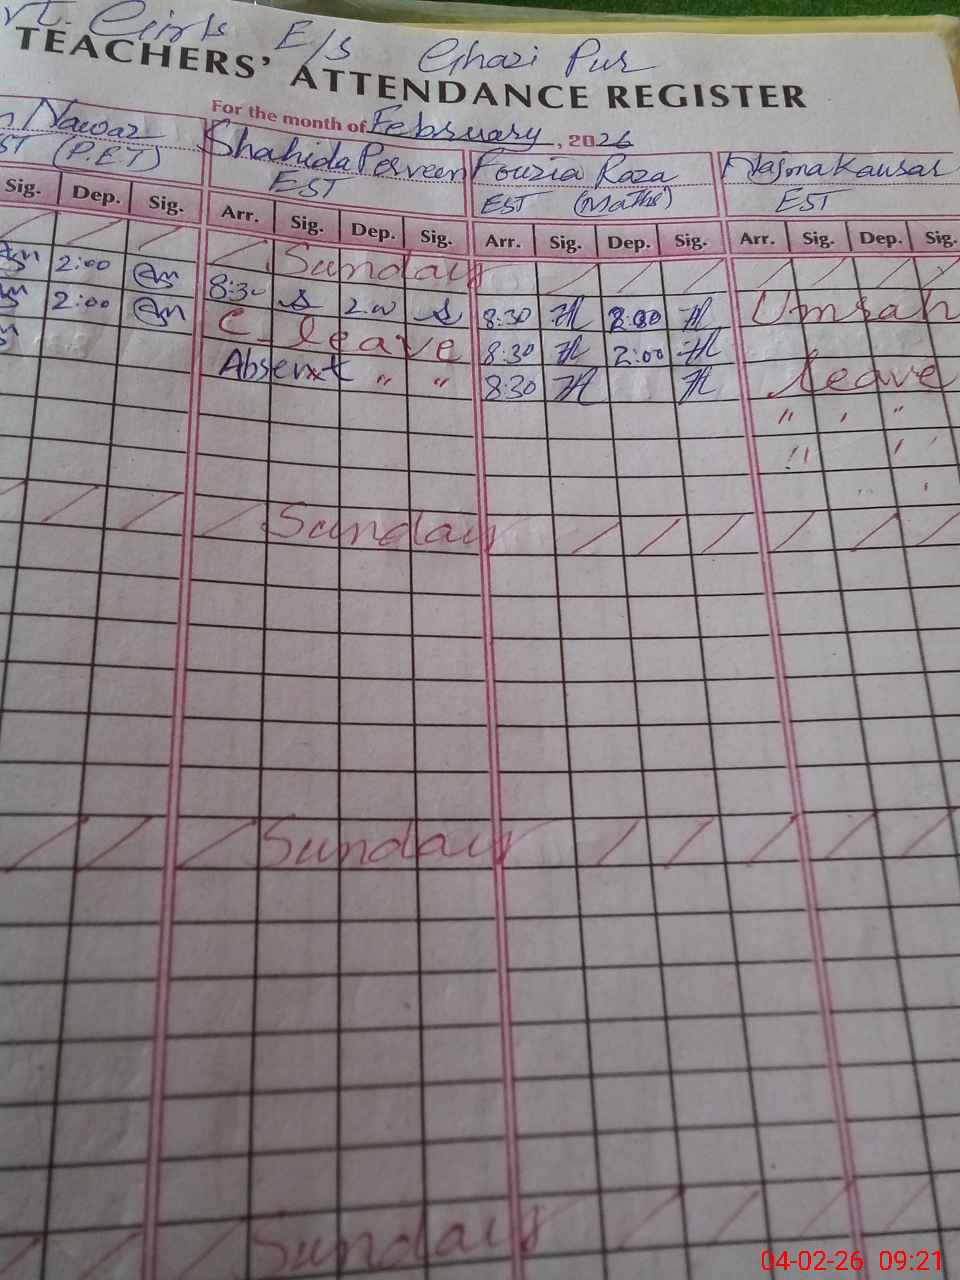 vt. Girls E/S Ghazi Pur
TEACHERS' ATTENDANCE REGISTER
For the month of February, 2026
Nawaz Shahida Perveen Fouzia Raza Najma Kausar
ST (P.E.T) EST EST (Maths) EST
Sig. Dep. Sig. Arr. Sig. Dep. Sig. Arr. Sig. Dep. Sig. Arr. Sig. Dep. Sig.
Sunday
2:00 8:30 2.00 8:30 2:00 Umrah
2:00 C. leave 8:30 2:00
Absent " " 8:30 leave
" " "
Sunday
Sunday
Sunday
04-02-26 09:21